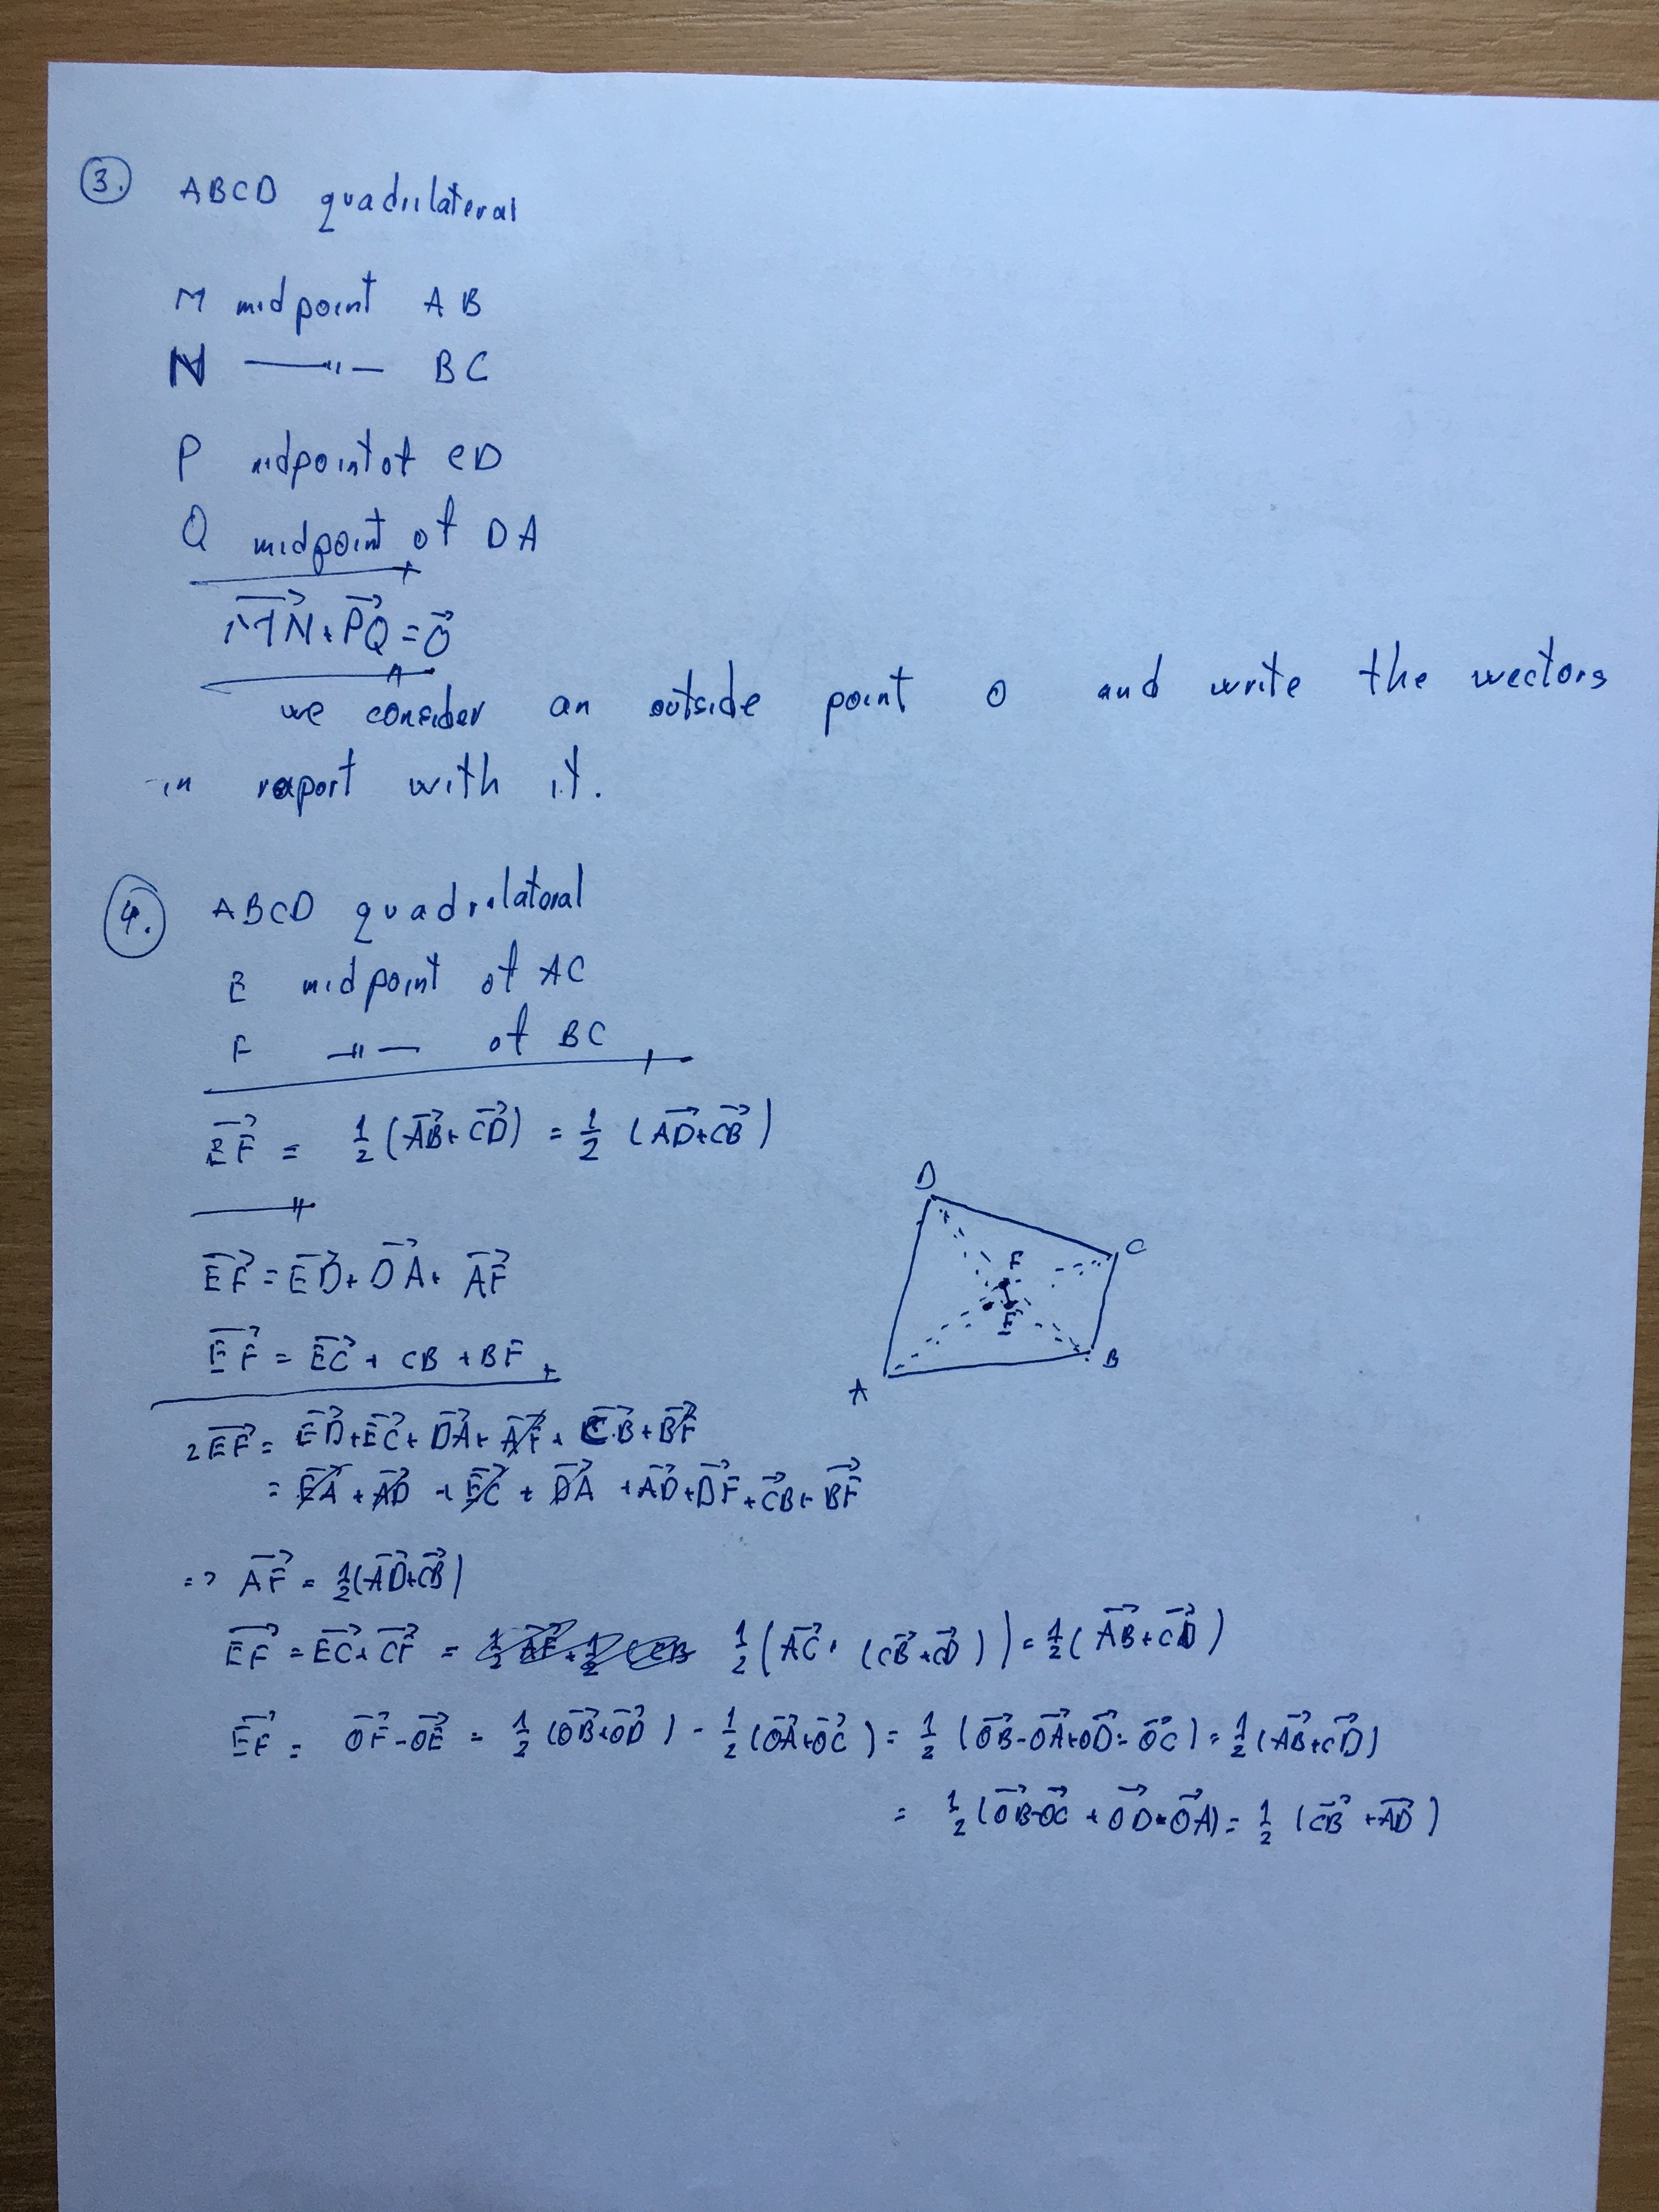 3. ABCD quadrilateral
M midpoint AB
N —"— BC
P midpoint of CD
Q midpoint of DA
MN + PQ = 0
we consider an outside point O and write the wectors
in raport with it.
4. ABCD quadrilatoral
E midpoint of AC
F —"— of BC
EF = 1/2 (AB + CD) = 1/2 (AD + CB)
EF = ED + DA + AF
EF = EC + CB + BF +
D
C
F
E
B
A
2EF = ED + EC + DA + AF + CB + BF
= EA + AD + EC + DA + AD + DF + CB + BF
=> AF = 1/2 (AD + CB)
EF = EC + CF = 1/2 (AC + (CB + CD)) = 1/2 (AB + CD)
EF = OF - OE = 1/2 (OB + OD) - 1/2 (OA + OC) = 1/2 (OB - OA + OD - OC) = 1/2 (AB + CD)
= 1/2 (OB - OC + OD - OA) = 1/2 (CB + AD)